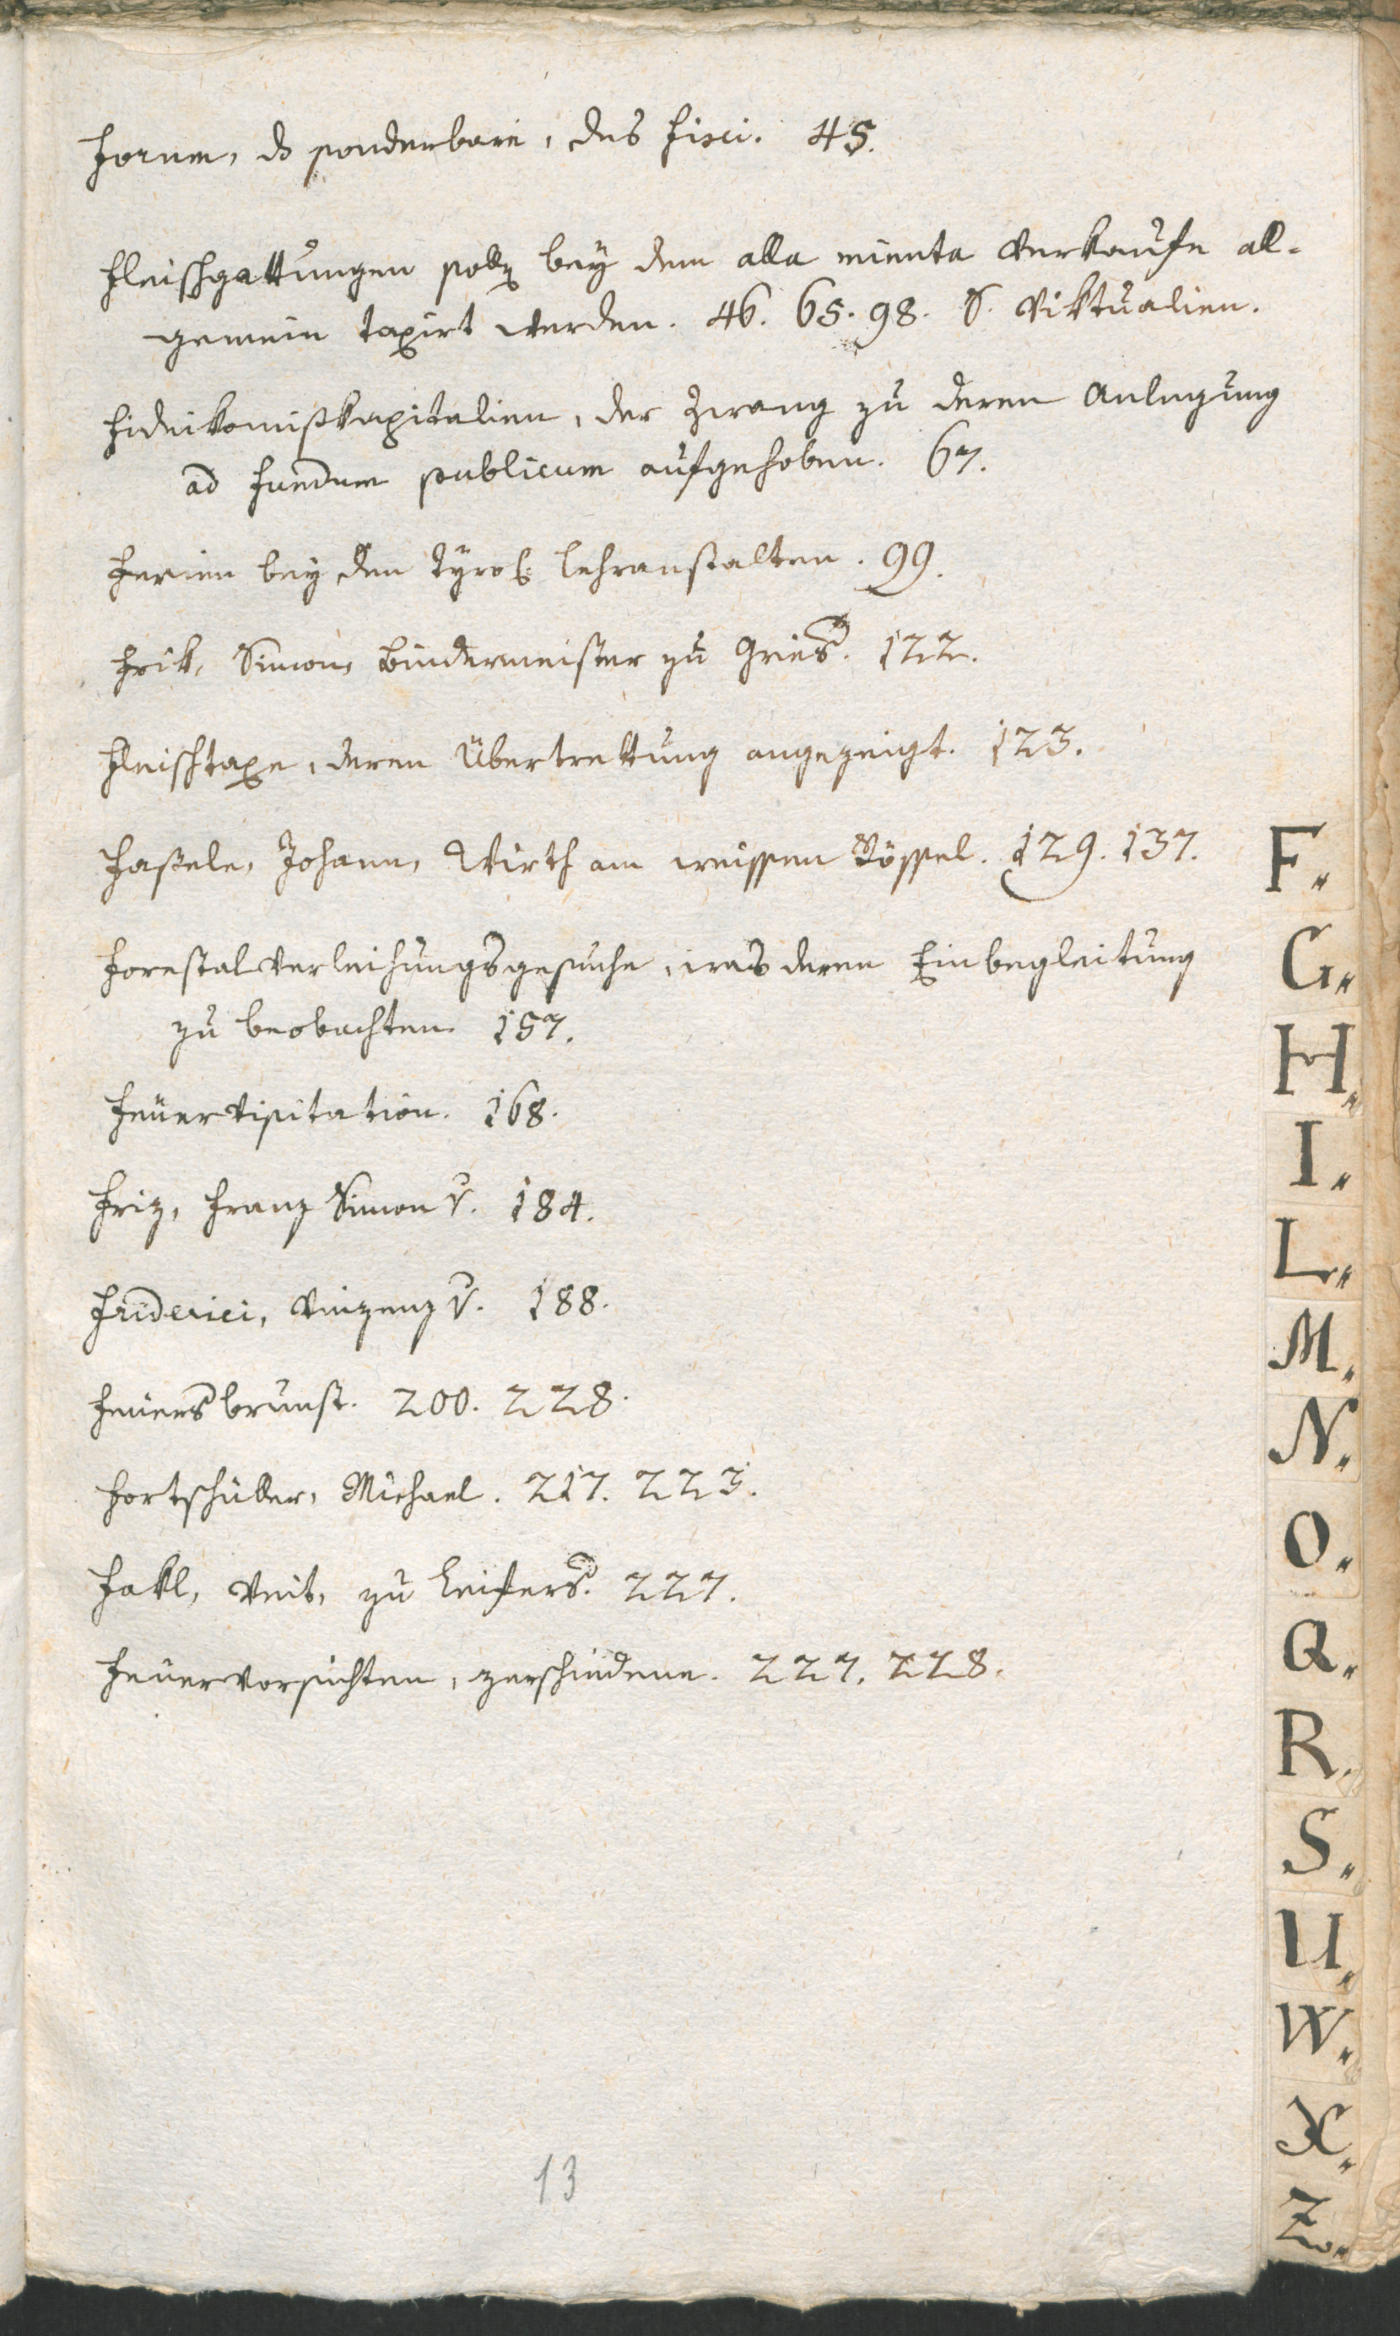 Forum, ds sonderbare, des Fisci. 45.
Fleischgattungen solln bey dem alla minuta Verkaufe all-
gemein taxirt werden. 46. 65. 98. S. Viktualien.
Fideikomißkapitalien, der Zwang zu deren Anlegung
ad fundum publicum aufgehoben. 67.
Ferien bey den Tyrol: Lehranstalten. 99.
Frik, Simon, Bindermeister zu Gries. 122.
Fleischtaxe, deren Übertrettung angezeigt. 123.
Faßele, Johann, Wirth am weissen Rössel. 129. 137.
Forestalverleihungsgesuche, was deren Einbegleitung
zu beobachten. 157.
Feuervisitation. 168.
Friz, Franz Simon v. 184.
Friderici, Vinzenz v. 188.
Feuersbrunst. 200. 228.
Fortschüller, Michael. 217. 223.
Fakl, Veit, zu Leifers. 227.
Feuervorsichten, zerschiedene. 227. 228.
13
F.
G.
H.
I.
L.
M.
N.
O.
Q.
R.
S.
U.
W.
X.
Z.